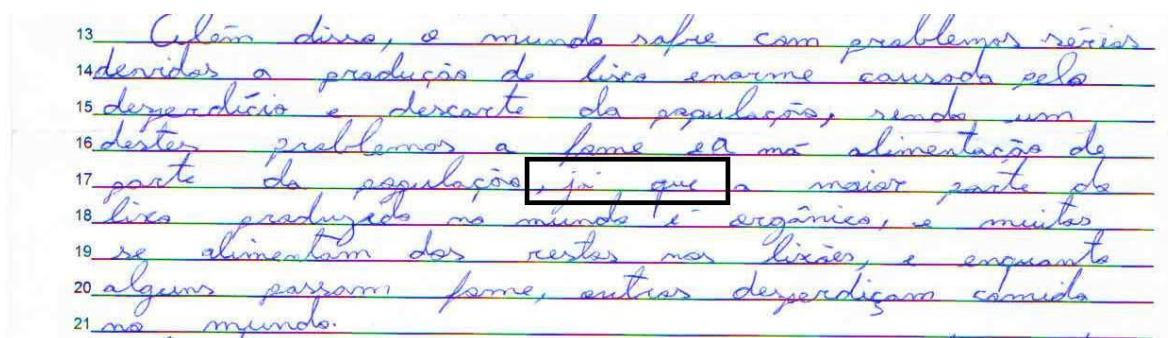 13 Além disso, o mundo sofre com problemas sérios
14 devidos a produção de lixo enorme causada pelo
15 desperdício e descarte da população, sendo um
16 destes problemas a fome e a má alimentação de
17 parte da população, já que a maior parte do
18 lixo produzido no mundo é orgânico, e muitos
19 se alimentam dos restos nos lixões, e enquanto
20 alguns passam fome, outros desperdiçam comida
21 no mundo.